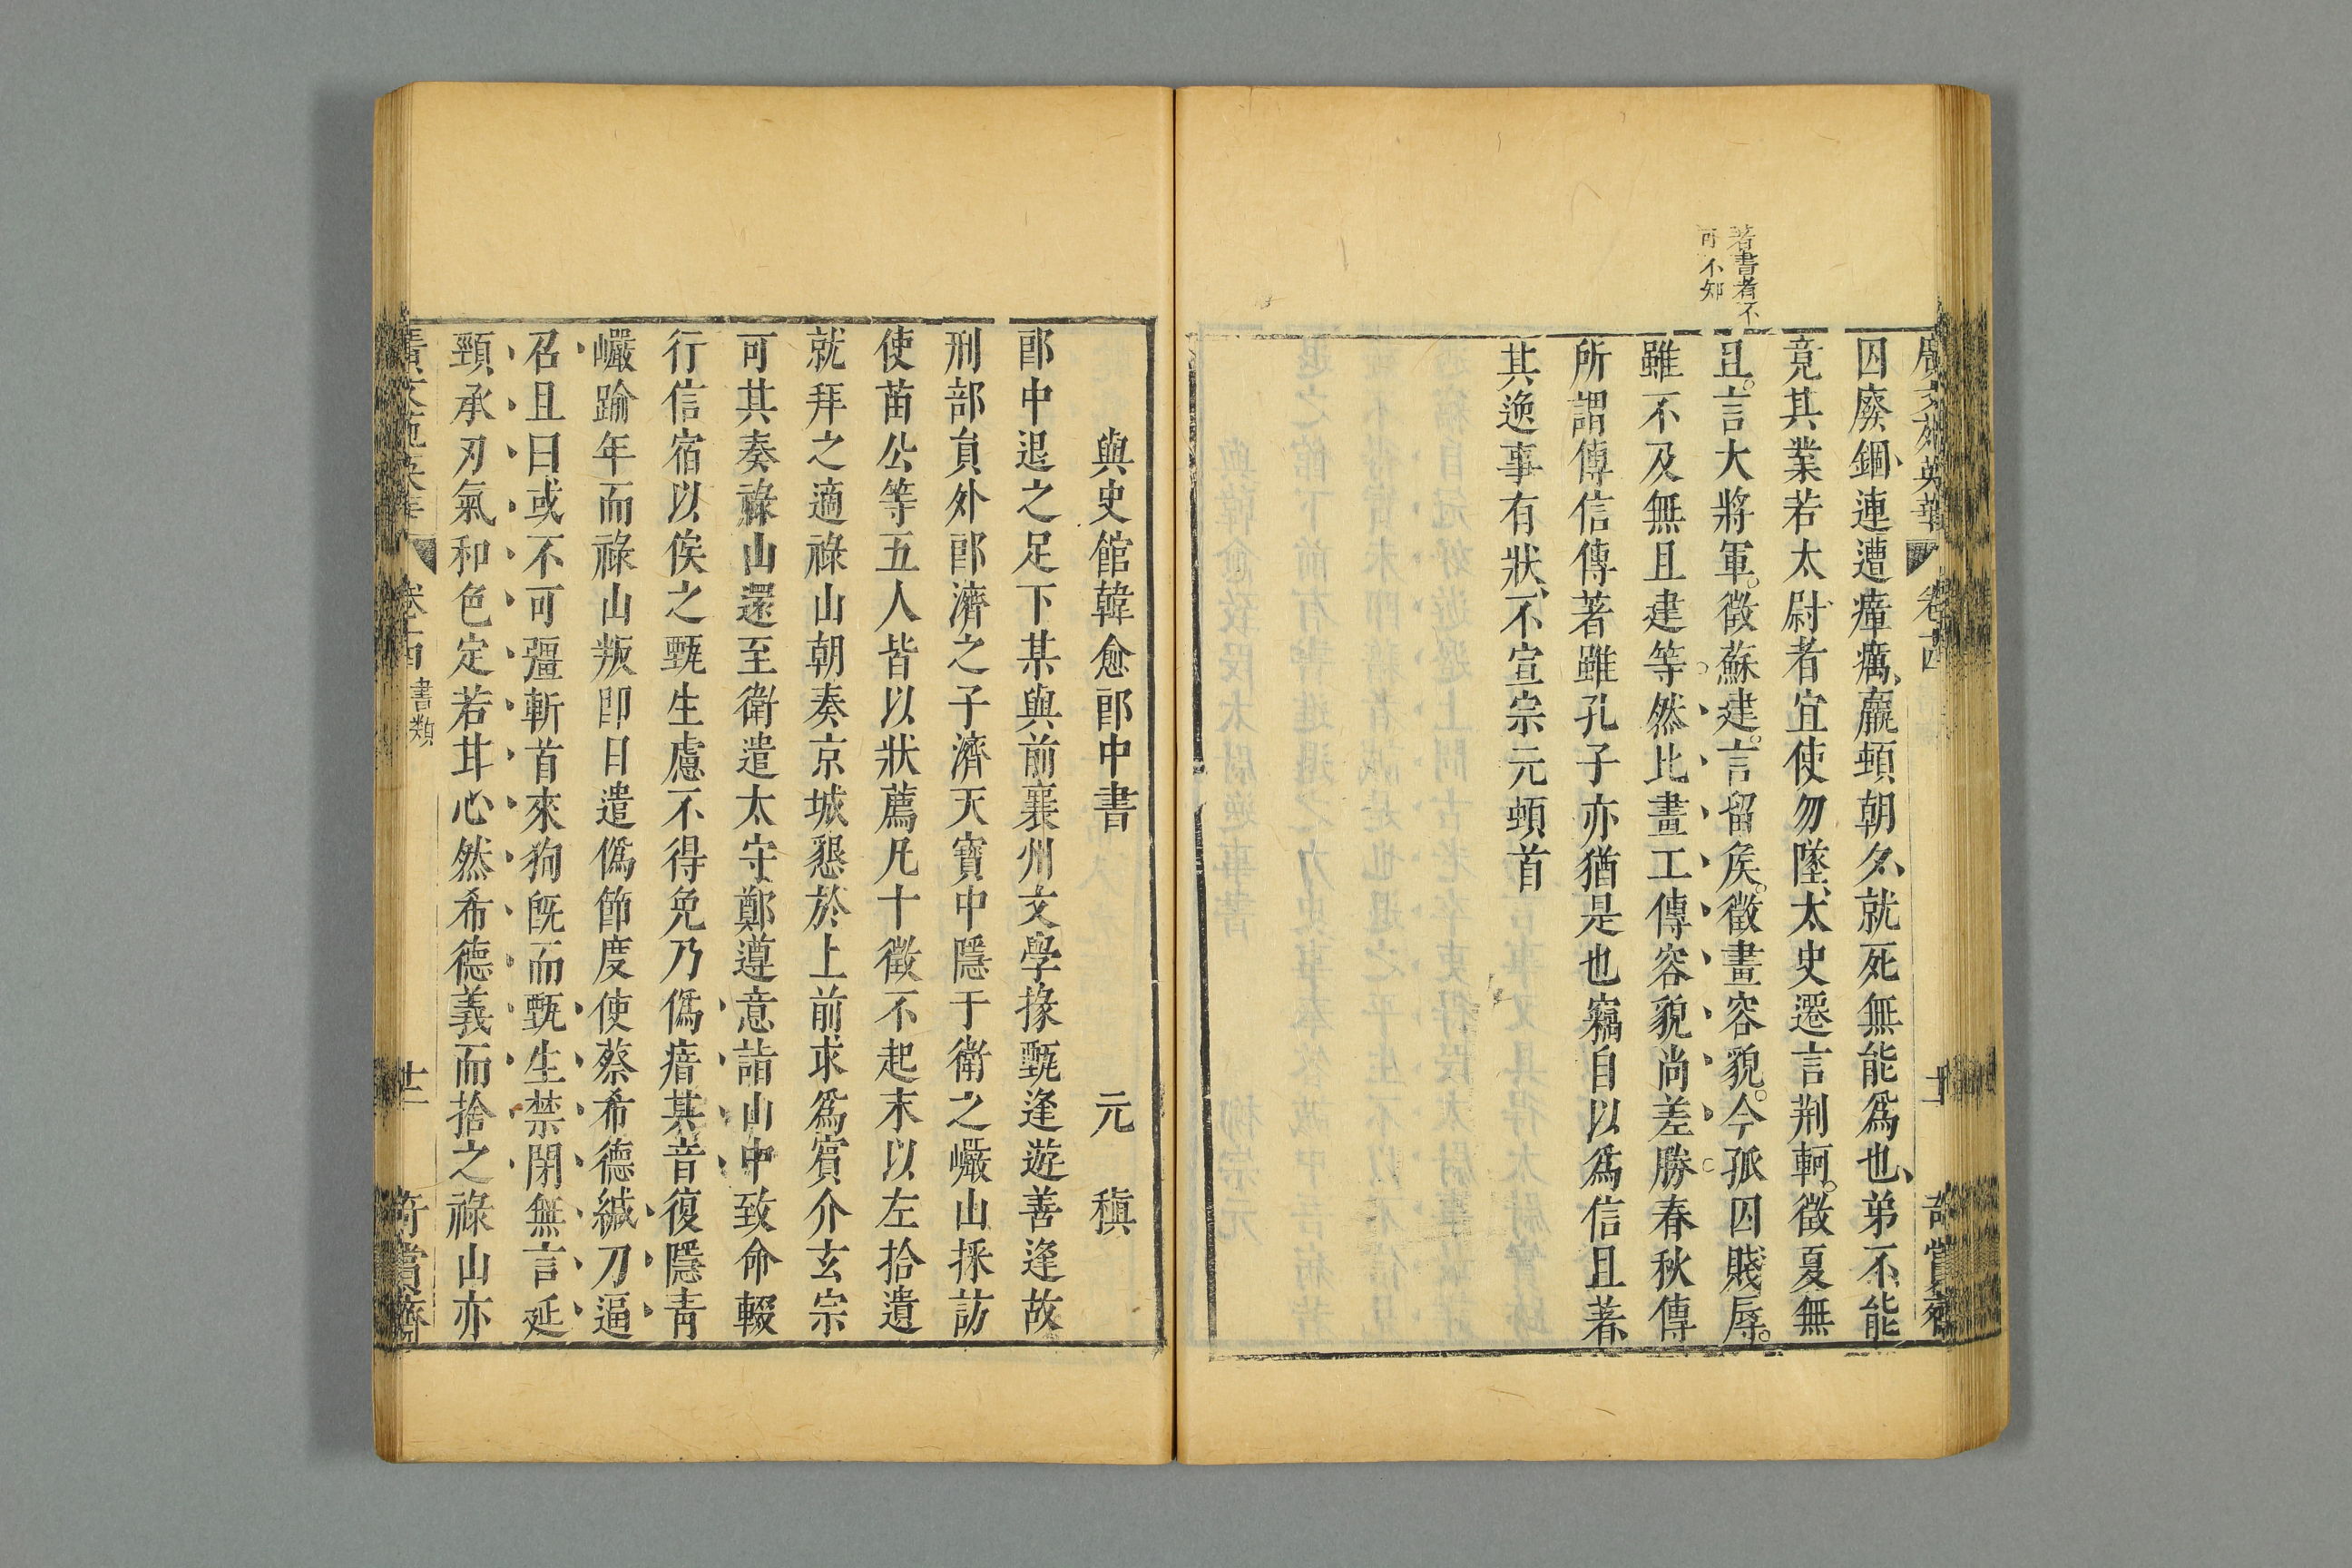 廣文苑英華 卷十四 奇賞齋
著書者不
可不知
囚廢錮連遭瘴癘羸頓朝夕就死無能爲也弟不能
竟其業若太尉者宜使勿墜太史遷言荆軻徵夏無
且言大將軍徵蘇建言留矦徵畫容貌今孤囚賤辱
雖不及無且建等然比畫工傳容貌尚差勝春秋傳
所謂傳信傳著雖孔子亦猶是也竊自以爲信且著
其逸事有狀不宣宗元頓首
與史館韓愈郎中書 元稹
郎中退之足下某與前襄州文學掾甄逢遊善逢故
刑部員外郎濟之子濟天寶中隱于衛之巖山採訪
使苗公等五人皆以狀薦凡十徵不起末以左拾遺
就拜之適祿山朝奏京城懇於上前求爲賓介玄宗
可其奏祿山還至衛遣太守鄭遵意詣山中致命輟
行信宿以俟之甄生慮不得免乃僞瘖其音復隱靑
巖踰年而祿山叛卽日遣僞節度使蔡希德緘刀逼
召且曰或不可彊斬首來狥旣而甄生禁閉無言延
頸承刃氣和色定若甘心然希德義而捨之祿山亦
卷十四 書類 奇賞齋